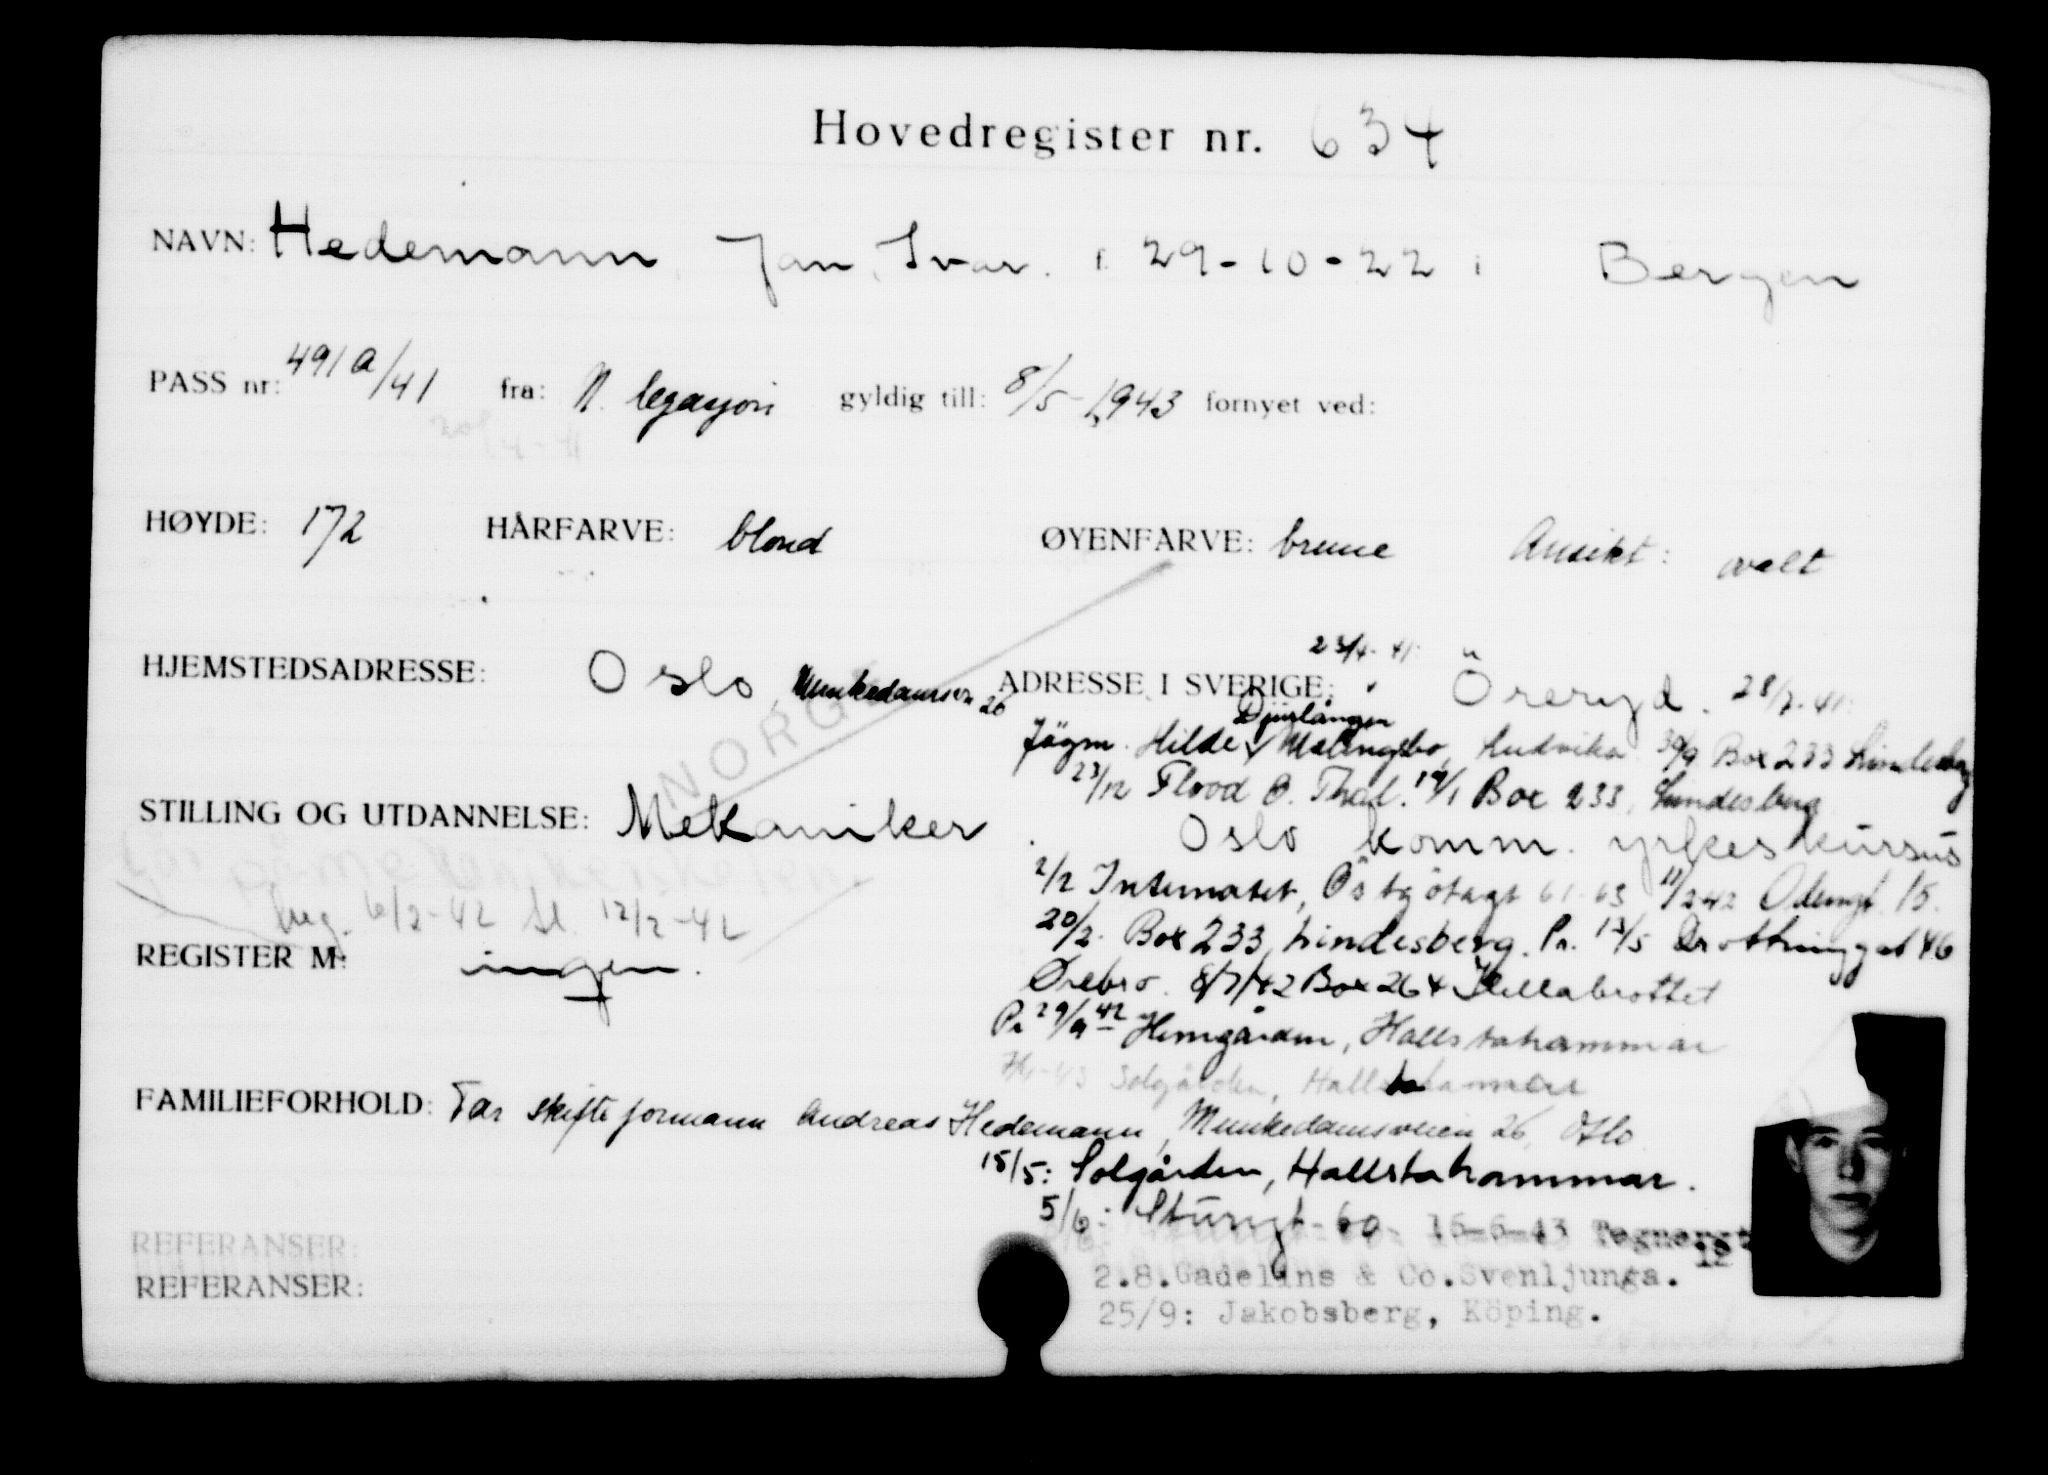 Hovedregister nr. 634
NAVN: Hedemann, Jan, Ivar. f. 29-10-22 i Bergen
PASS nr: 491a/41 fra: N. legasjon gyldig till: 8/5-1943 fornyet ved:
HØYDE: 172 HÅRFARVE: blond ØYENFARVE: brune Ansikt: ovalt
HJEMSTEDSADRESSE: Oslo, Munkedamsvn 26
NORGE
ADRESSE I SVERIGE: 23/4-41: Öreryd. 28/7-41:
Djürlången
Jägm. Hilde, Malingsbo, Ludvika 30/9 Box 233 Lindesberg
23/12 Flood Ö. Thal. 19/1 Box 233, Lindesberg
STILLING OG UTDANNELSE: Mekaniker. Oslo komm. yrkeskursus
6/2-42 12/2-42
2/2 Internatet, Östgötagt 61-63 11/2 42 Odengt. 15.
20/2. Box 233, Lindesberg. Pr. 13/5 Drottninggat 46
Örebro. 8/7/42 Box 264 Hellabrottet
REGISTER M: ingen.
Pr 29/9 42 Hemgården, Hallstahammar
Solgården, Hallstahammar
FAMILIEFORHOLD: Far skifteformann Andreas Hedemann, Munkedamsveien 26, Oslo.
15/5: Solgården, Hallstahammar.
5/6: Sturegt-60- 16-6-43 Tegnergt
12
REFERANSER:
REFERANSER:
2.8.Gadelins & Co.Svenljunga.
25/9: Jakobsberg, Köping.